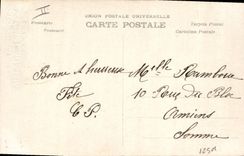 II
UNION POSTALE UNIVERSELLE
CARTE POSTALE
Postkarte
Tarjeta Postal
Postcard
Cartolina Postale
Bonne & heureuse
Fête
C P.
Mlle Rambour
10 Rue du Bloc
Amiens
Somme